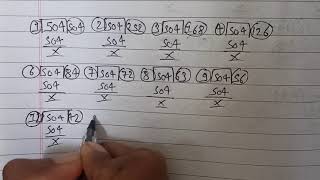 ① 504 504 ② 504 252 ③ 504 168 ④ 504 126
504 504 504 504
x x x x
⑥ 504 84 ⑦ 504 72 ⑧ 504 63 ⑨ 504 56
504 504 504 504
x x x x
504 42
504
x